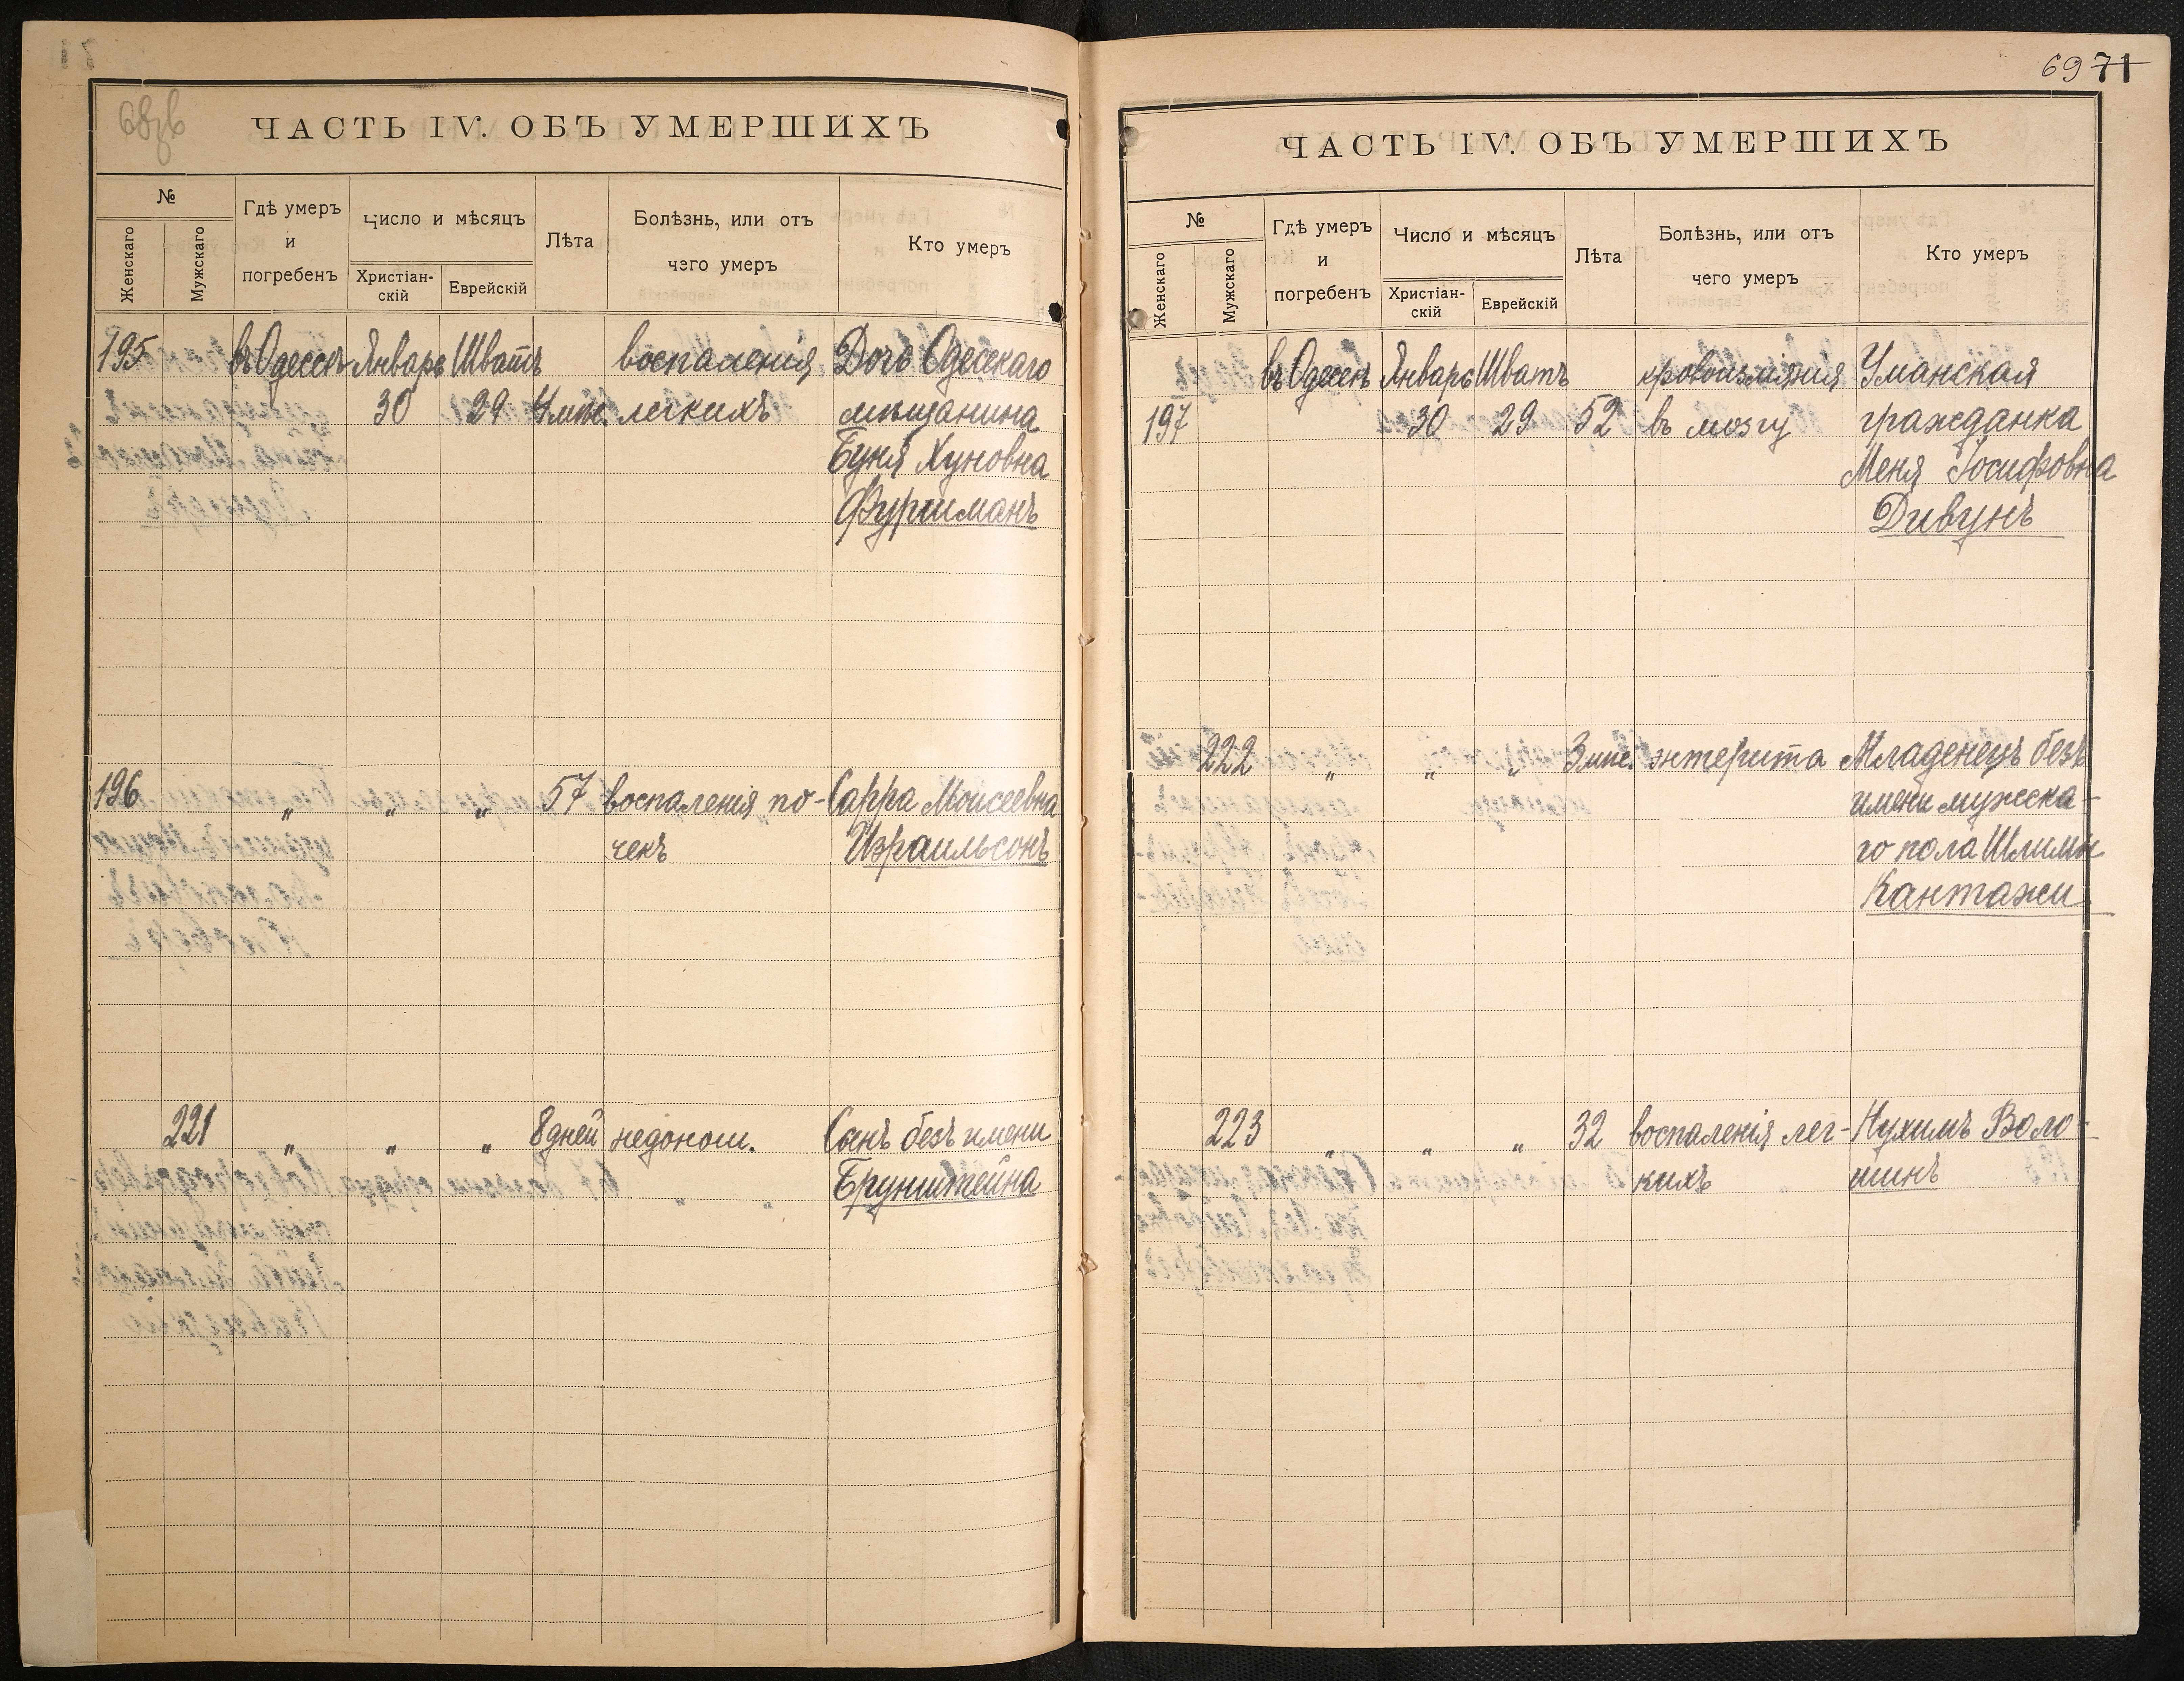 68об
ЧАСТЬ IV. ОБЪ УМЕРШИХЪ
№
Женскаго
Мужскаго
Гдѣ умеръ
и
погребенъ
Число и мѣсяцъ
Христіан-
скій
Еврейскій
Лѣта
Болѣзнь, или отъ
чего умеръ
Кто умеръ
195 въ Одессѣ Январь Шватъ воспаленія Дочь Одесскаго
30 29 4 мѣс. легкихъ мѣщанина
Буня Хуновна
Фурманъ
196 " " " 57 воспаленія по- Сарра Моисеевна
чекъ Израильсонъ
221 " " " 8 дней недонош. Сынъ безъ имени
Брунштейна
69 71
ЧАСТЬ IV. ОБЪ УМЕРШИХЪ
№
Женскаго
Мужскаго
Гдѣ умеръ
и
погребенъ
Число и мѣсяцъ
Христіан-
скій
Еврейскій
Лѣта
Болѣзнь, или отъ
чего умеръ
Кто умеръ
въ Одессѣ Январь Шватъ кровоизліянія Уманская
197 30 29 52 въ мозгу гражданка
Меня Іосифовна
Дивунъ
222 " " " 3 мѣс. энтерита Младенецъ безъ
имени мужска-
го пола Шлимы
Кантажи
223 " " " 32 воспаленія лег- Нухимъ Воло-
кихъ шинъ